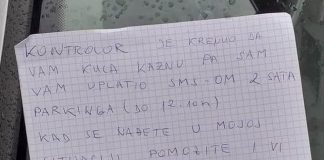 KONTROLOR JE KRENUO DA
VAM KUCA KAZNU PA SAM
VAM UPLATIO SMS-OM 2 SATA
PARKINGA (DO 12.10h)
KAD SE NAĐETE U MOJOJ
SITUACIJI POMOZITE I VI